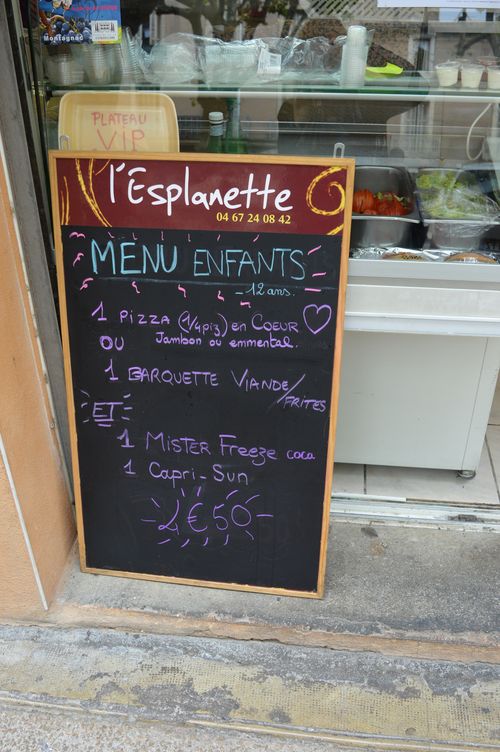 Montagnac
PLATEAU
VIP
l'Esplanette
04 67 24 08 42
MENU ENFANTS
-12 ans.
1 PIZZA (1/4 piz) en COEUR
OU Jambon ou emmental.
1 BARQUETTE VIANDE/
FRITES
ET
1 MISTER Freeze coca
1 Capri-Sun
4€50